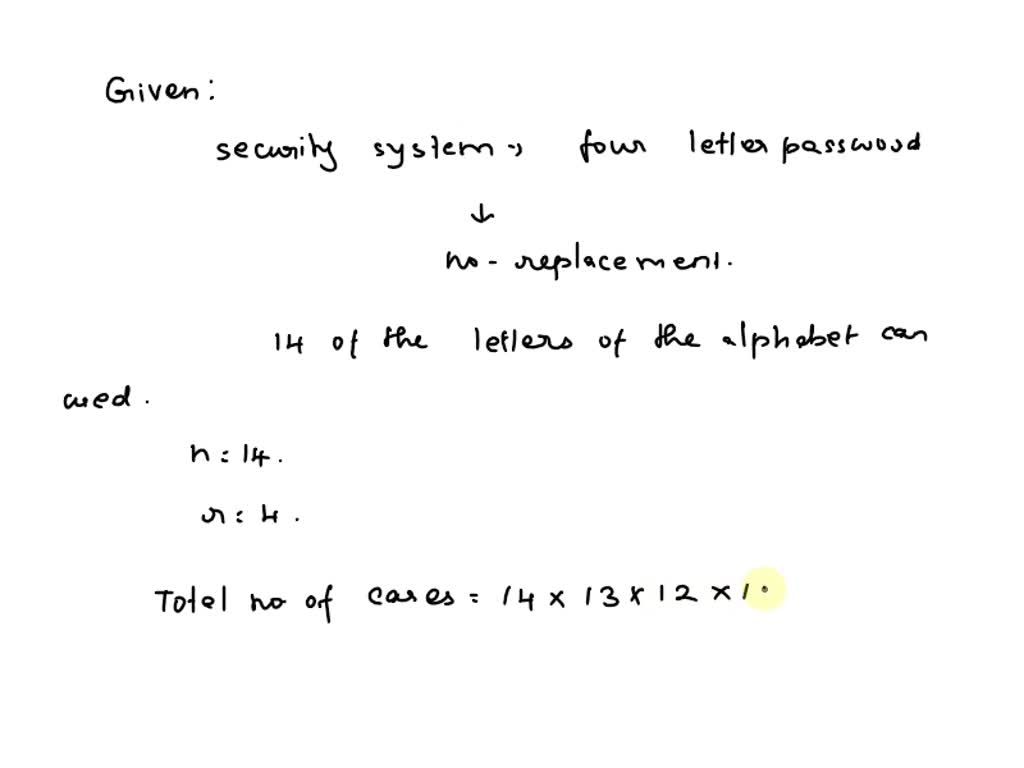 Given:
security system → four letter password
↓
no - replacement.
14 of the letters of the alphabet can
used.
n = 14.
r = 4.
Total no of cases = 14 × 13 × 12 × 1